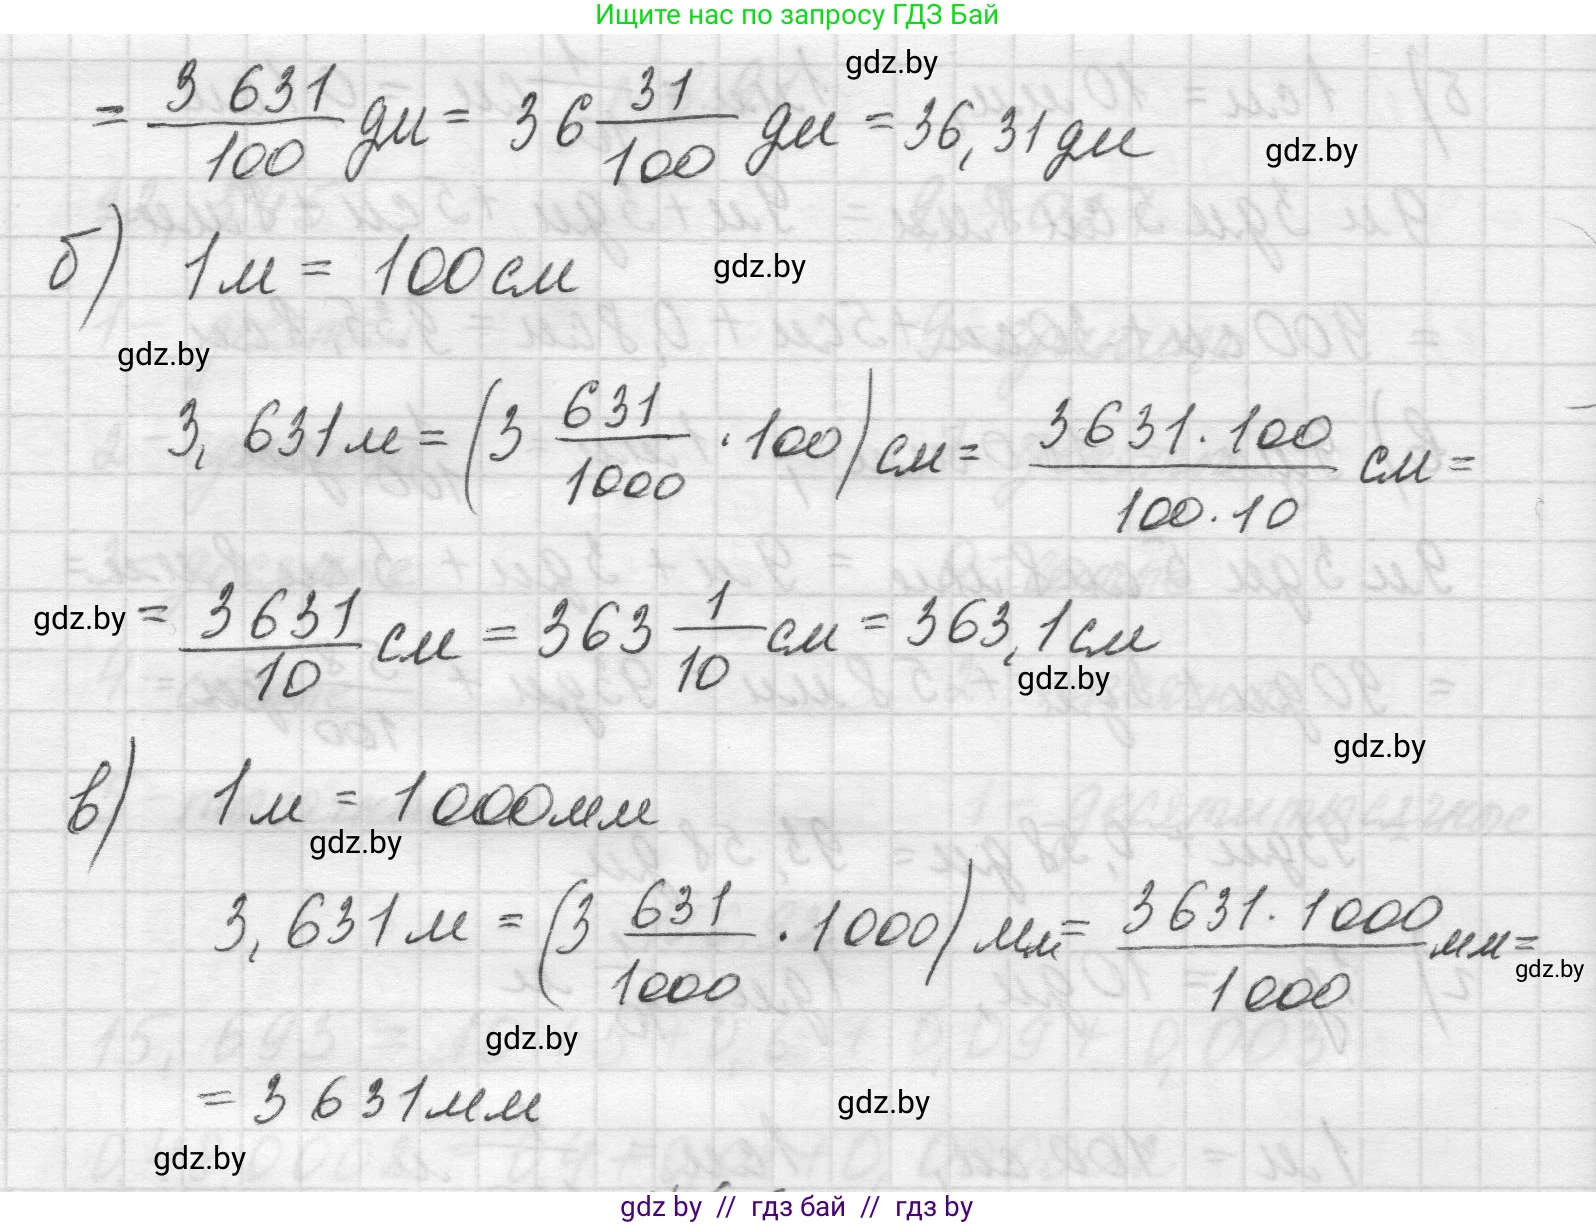 Ищите нас по запросу ГДЗ Бай
gdz.by
= 3 631/100 дм = 36 31/100 дм = 36,31 дм
gdz.by
б) 1 м = 100 см
gdz.by
gdz.by
3,631 м = (3 631/1000 · 100) см = 3631·100/100·10 см =
gdz.by = 3631/10 см = 363 1/10 см = 363,1 см
gdz.by
gdz.by
в) 1 м = 1000 мм
gdz.by
3,631 м = (3 631/1000 · 1000) мм = 3631·1000/1000 мм =
gdz.by
gdz.by
= 3 631 мм
gdz.by
gdz.by
gdz by // гдз бай // гдз by